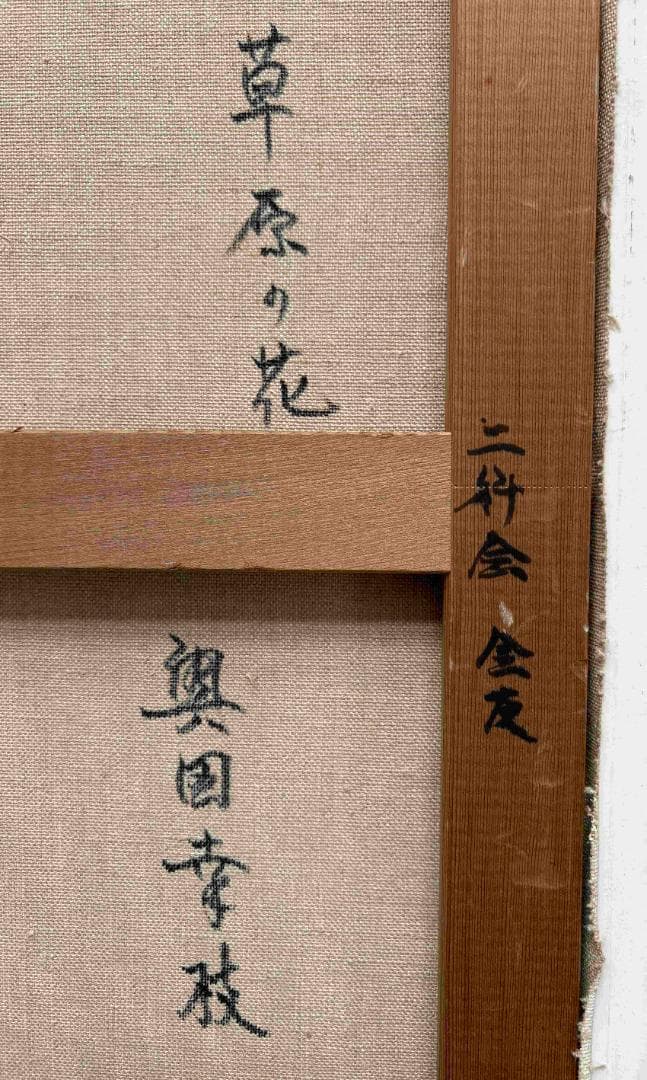 二科会 会友
草原の花
奥国幸枝